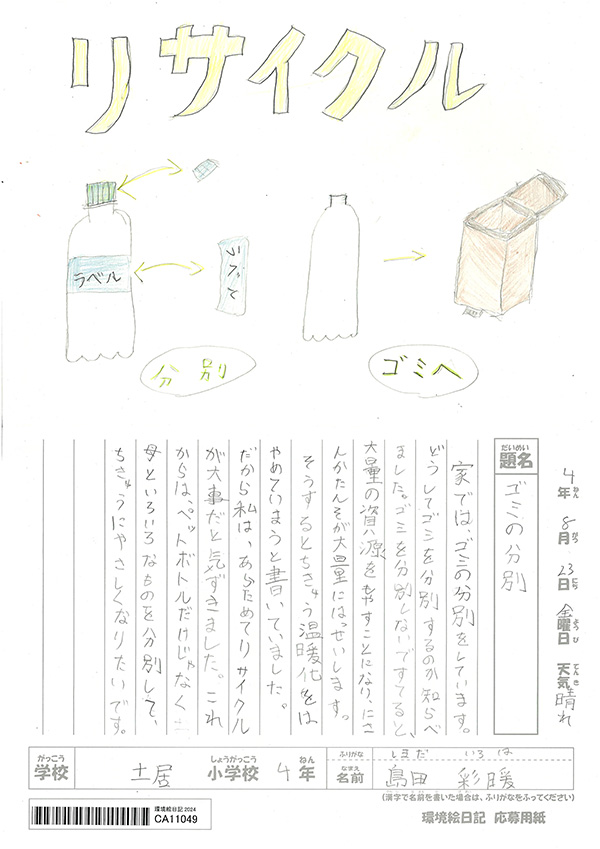 リサイクル
ラベル
ラベル
分別
ゴミへ
4年ねん
8月がつ
23日にち
金曜日ようび
天気てんき 晴れ
だいめい
題名
ゴミの分別
家では、ゴミの分別をしています。
どうしてゴミを分別するのか知らべ
ました。ゴミを分別しないですてると、
大量の資源をもやすことになり、にさ
んかたんそが大量にはっせいします。
そうするとちきゅう温暖化をは
やめてしまうと書いていました。
だから私は、あらためてリサイクル
が大事だと気ずきました。これ
からは、ペットボトルだけじゃなく
母といろいろなものを分別して、
ちきゅうにやさしくなりたいです。
がっこう
学校
土居
しょうがっこう
小学校
4
ねん
年
ふりがな
しまだ いろは
なまえ
名前
島田 彩暖
(漢字で名前を書いた場合は、ふりがなをふってください)
環境絵日記2024
CA11049
環境絵日記 応募用紙